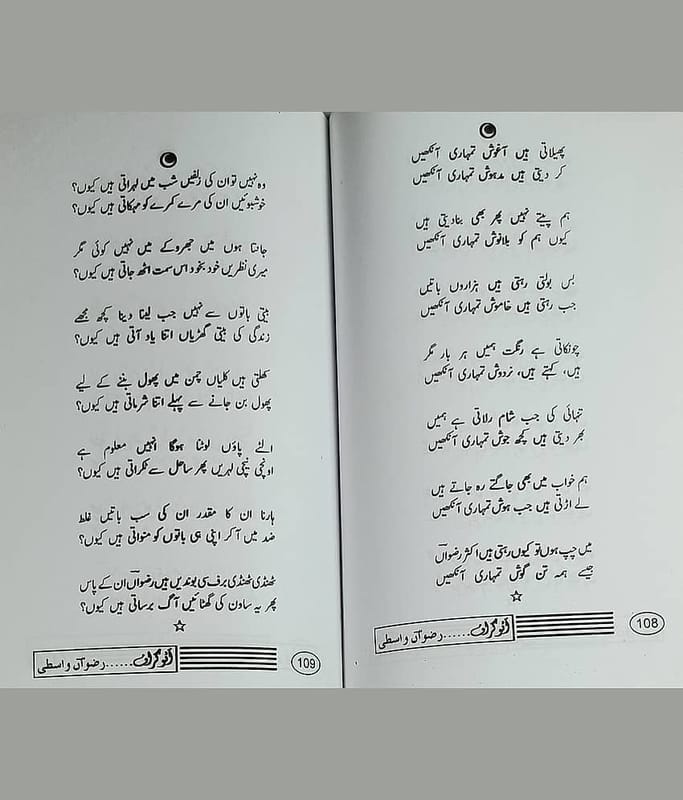 پھیلاتی ہیں آغوش تمہاری آنکھیں
کر دیتی ہیں مدہوش تمہاری آنکھیں
ہم پیتے نہیں پھر بھی بنا دیتی ہیں
کیوں ہم کو بلانوش تمہاری آنکھیں
بس بولتی رہتی ہیں ہزاروں باتیں
جب رہتی ہیں خاموش تمہاری آنکھیں
چونکاتی ہے رنگت ہمیں ہر بار مگر
ہیں، کہتے ہیں، نردوش تمہاری آنکھیں
تنہائی کی جب شام رلاتی ہے ہمیں
بھر دیتی ہیں کچھ جوش تمہاری آنکھیں
ہم خواب میں بھی جاگتے رہ جاتے ہیں
لے اڑتی ہیں جب ہوش تمہاری آنکھیں
میں چپ ہوں تو کیوں رہتی ہیں اکثر رضواںؔ
جیسے ہمہ تن گوش تمہاری آنکھیں
آٹوگراف......رضوان واسطی
108
وہ نہیں تو ان کی زلفیں شب میں لہراتی ہیں کیوں؟
خوشبوئیں ان کی مرے کمرے کو مہکاتی ہیں کیوں؟
جانتا ہوں میں جھروکے میں نہیں کوئی مگر
میری نظریں خود بخود اس سمت اٹھ جاتی ہیں کیوں؟
بیتی باتوں سے نہیں جب لینا دینا کچھ مجھے
زندگی کی بیتی گھڑیاں اتنا یاد آتی ہیں کیوں؟
کھلتی ہیں کلیاں چمن میں پھول بننے کے لیے
پھول بن جانے سے پہلے اتنا شرماتی ہیں کیوں؟
الٹے پاؤں لوٹنا ہوگا انہیں معلوم ہے
اونچی نیچی لہریں پھر ساحل سے ٹکراتی ہیں کیوں؟
ہارنا ان کا مقدر ان کی سب باتیں غلط
ضد میں آ کر اپنی ہی باتوں کو منواتی ہیں کیوں؟
ٹھنڈی ٹھنڈی برف سی بوندیں ہیں رضواںؔ ان کے پاس
پھر یہ ساون کی گھٹائیں آگ برساتی ہیں کیوں؟
آٹوگراف......رضوان واسطی
109